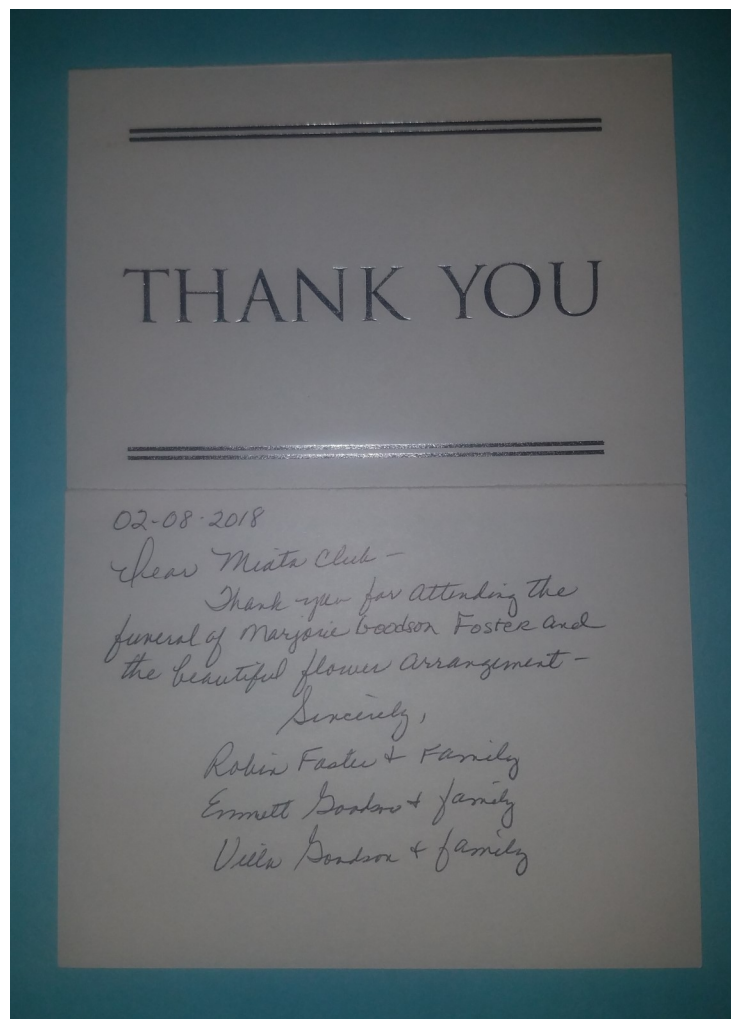 THANK YOU
02-08-2018
Dear Miata Club -
Thank you for attending the
funeral of Marjorie Goodson Foster and
the beautiful flower arrangement -
Sincerely,
Robin Foster & Family
Emmett Goodson & family
Goodson & family